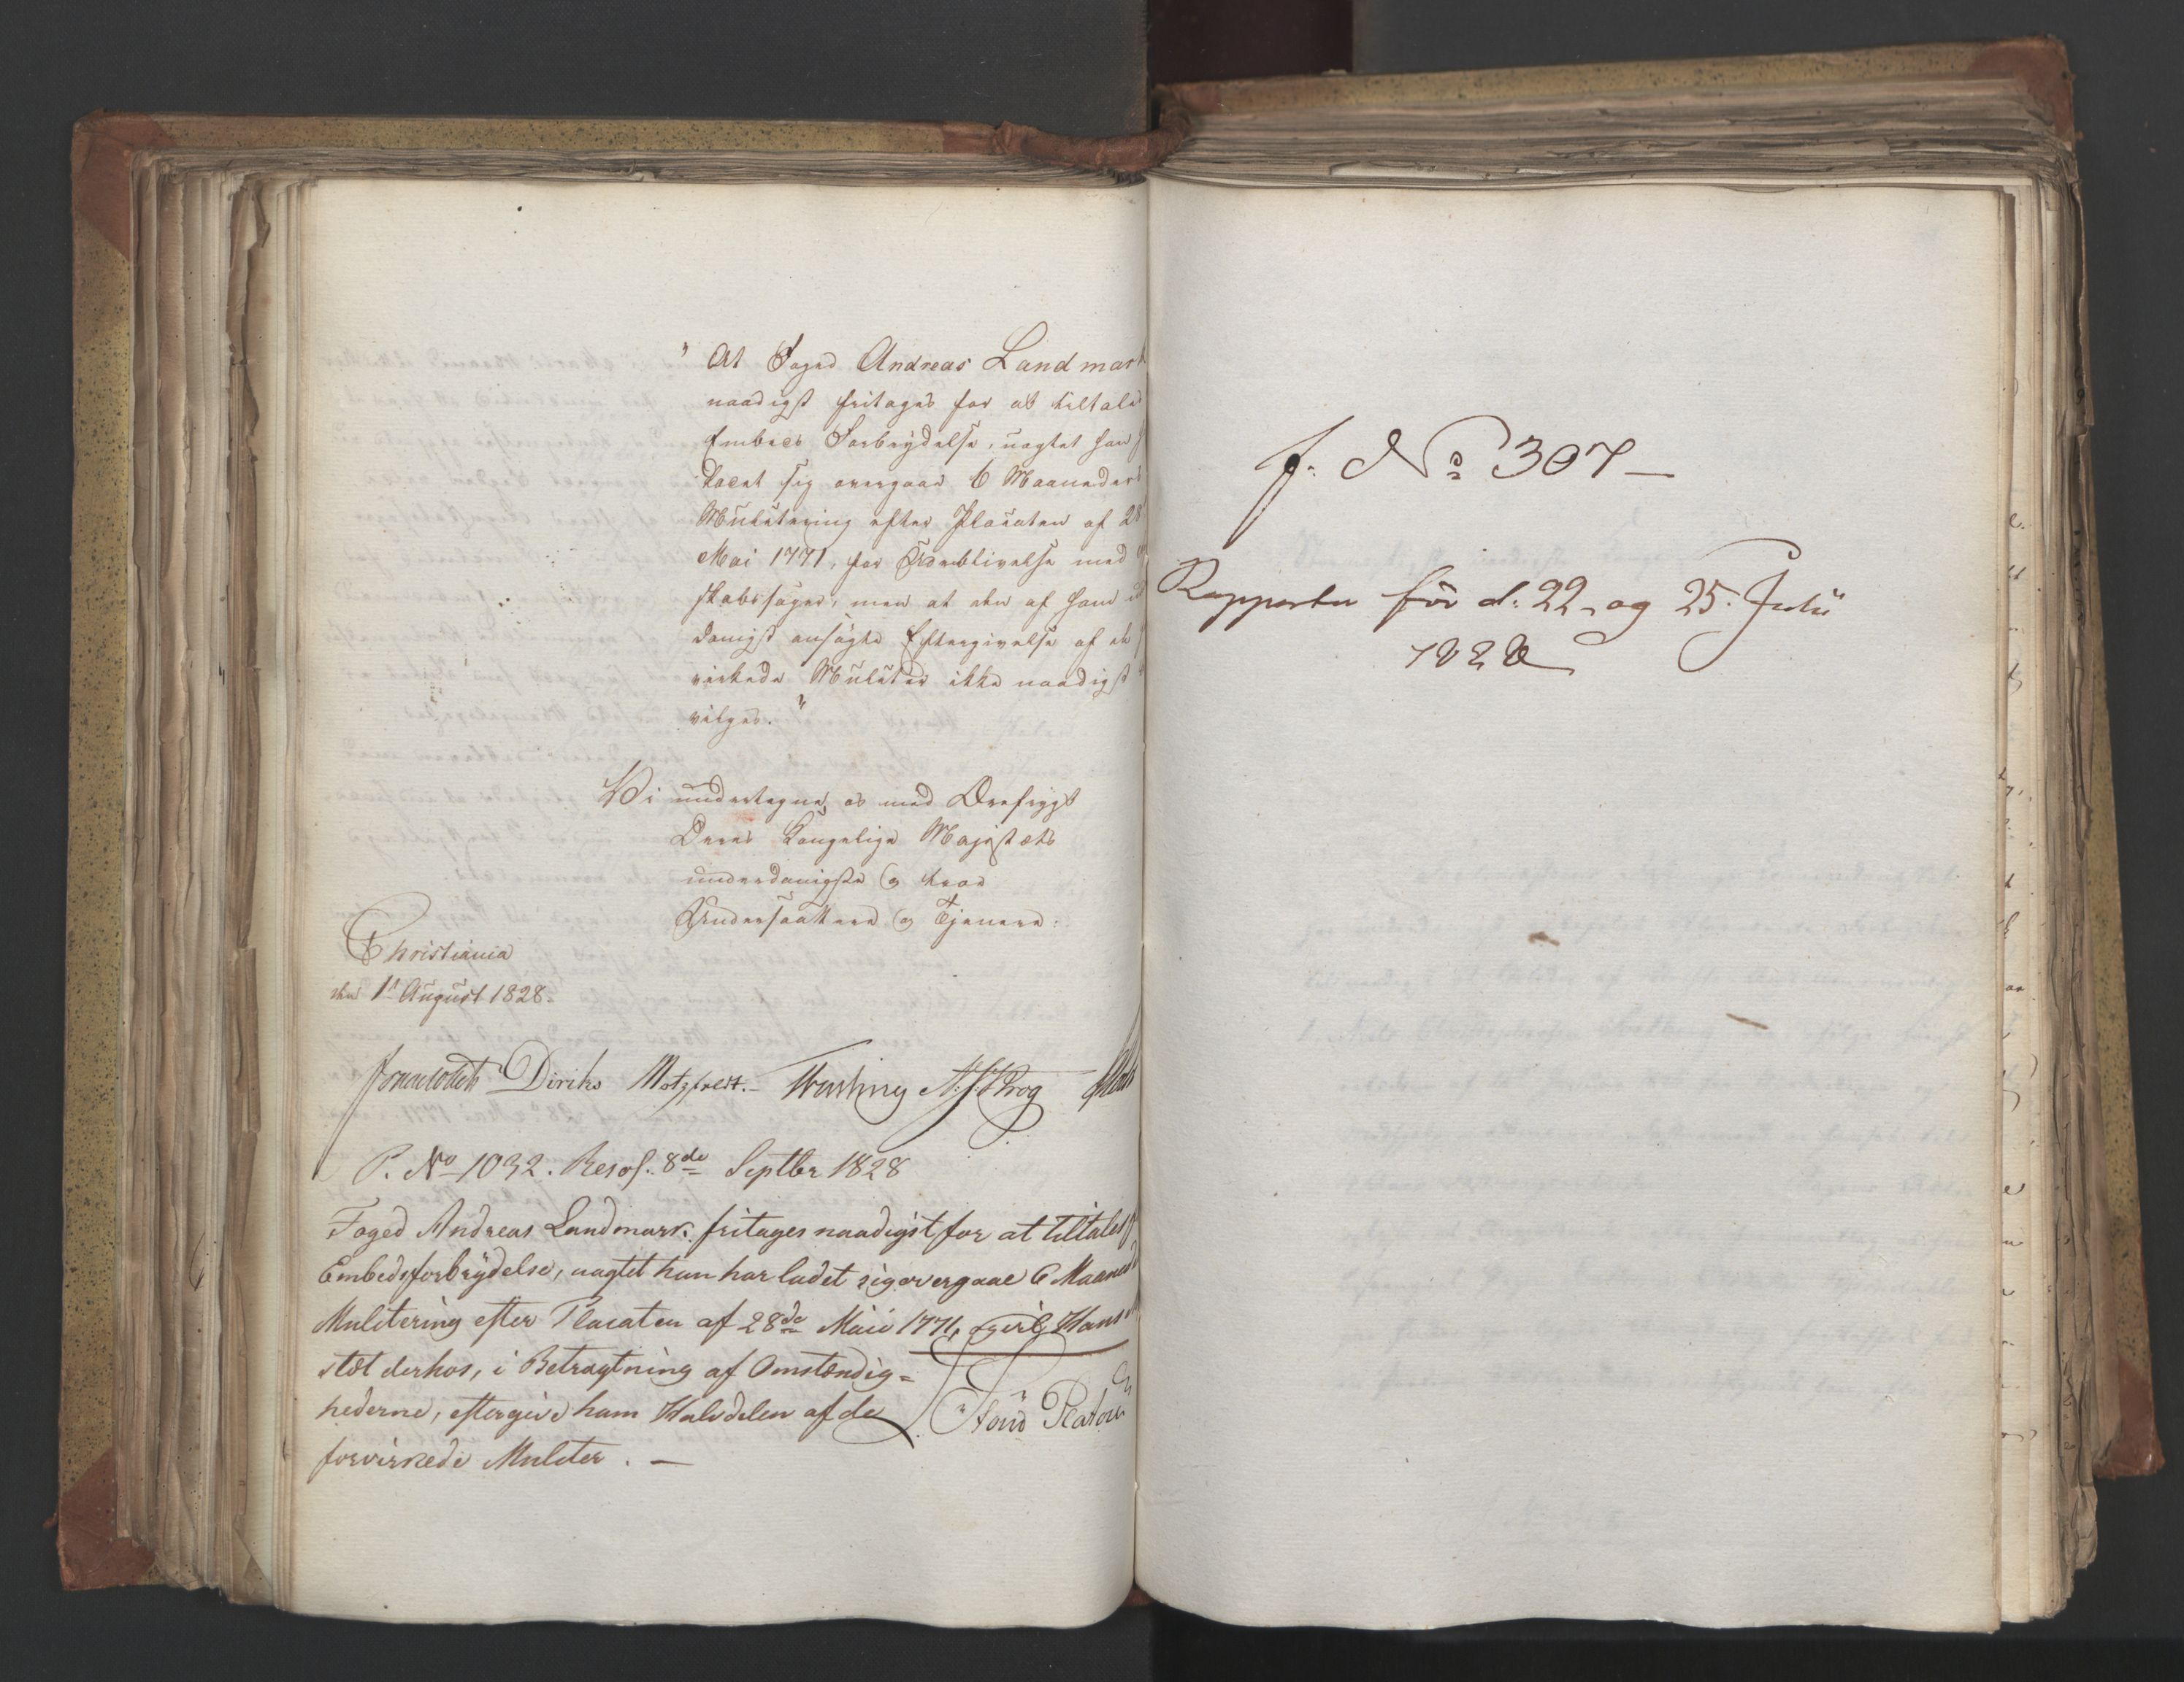 " At Foged Andreas Landmark
naadigst fritages for at tiltales
Embeds Forbrydelse, uagtet han
ladet sig overgaae 6 Maaneders
Mulctering efter Placaten af 28
Mai 1771, for Udeblivelse med
skabssager, men at den af ham
danigst ansøgte Eftergivelse af de
virkede Mulcter ikke naadigst
vilges. "
Vi undertegne os med Ærefrygt
Deres Kongelige Majestæts
underdanigste og troe
Undersaattere og Tjenere:
Christiania
den 1st August 1828.
Diriks Motzfeldt. Treschow Krog
P. No 1032. Resol. 8de Septbr 1828
Foged Andreas Landmark fritages naadigst for at tiltales
Embedsforbrydelse, uagtet han har ladet sig overgaae 6 Maaned
Mulctering efter Placaten af 28de Maii 1771,
stæt derhos, i Betragtning af Omstændig=
hederne, eftergive ham Halvdelen af de
forvirkede Mulcter. —
N: 307 —
Rapporten för d. 22 og 25. Julii
1828